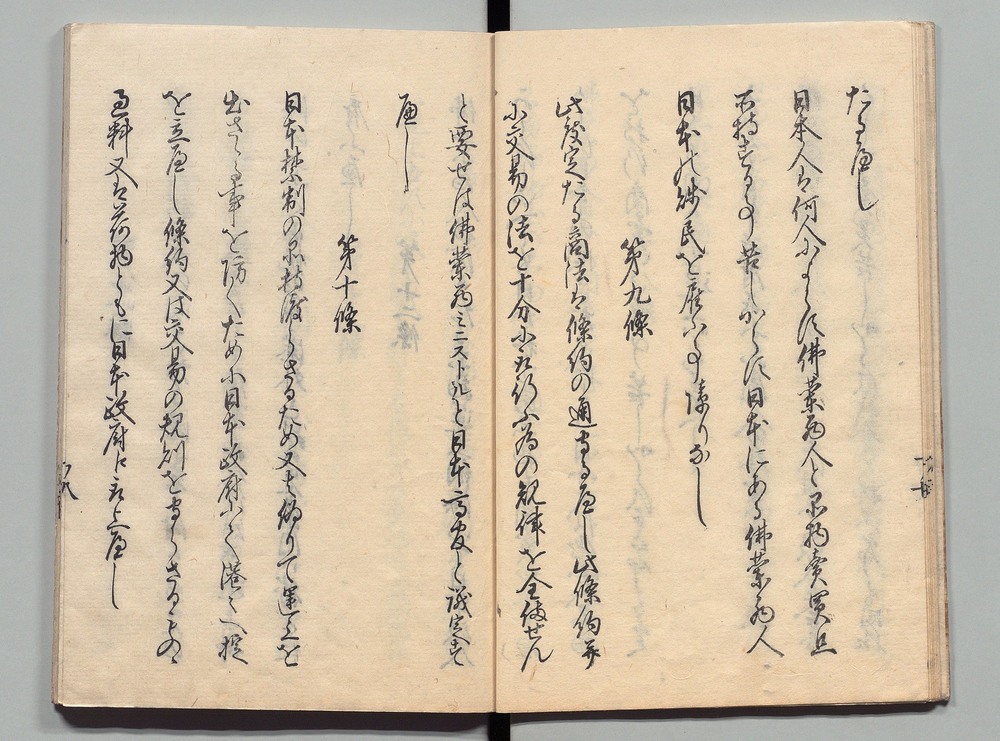 たるへし
日本人は何人によらす佛蘭西人と品物賣買且
所持する事苦しからす日本にある佛蘭西人
日本の賤民を雇ふ事障りなし
第九條
此度定たる商法は條約の通守るへし此條約并
に交易の法を十分に取行ふ為の規律を全備せん
と要せは佛蘭西ミニストルと日本高官と議定す
へし
第十條
日本禁制の品持渡らさるため又は偽りて運上を
出さゝる事を防くため日本政府にて港々へ掟
を立へし條約又は交易の規則を守らさるものゝ
過料又は荷物ともに日本政府に取上へし